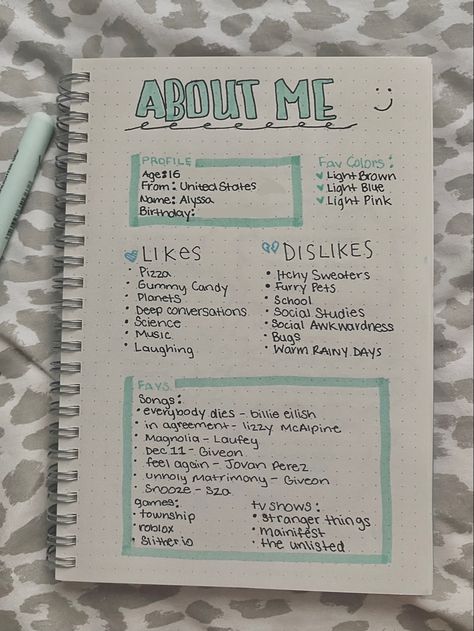 ABOUT ME
PROFILE
Age: 16
From: United States
Name: Alyssa
Birthday:
Fav Colors:
Light Brown
Light Blue
Light Pink
LIKES
• Pizza
• Gummy Candy
• Planets
• Deep conversations
• Science
• Music
• Laughing
DISLIKES
• Itchy Sweaters
• Furry Pets
• School
• Social Studies
• Social AWKwardness
• Bugs
• Warm RAINY DAYS
FAVS
Songs:
• everybody dies - billie eilish
• in agreement - lizzy McAlpine
• Magnolia - Laufey
• Dec 11 - Giveon
• feel again - Jovan Perez
• unholy matrimony - Giveon
• Snooze - Sza
games:
• township
• roblox
• Slitherio
tv shows:
• stranger things
• mainifest
• the unlisted